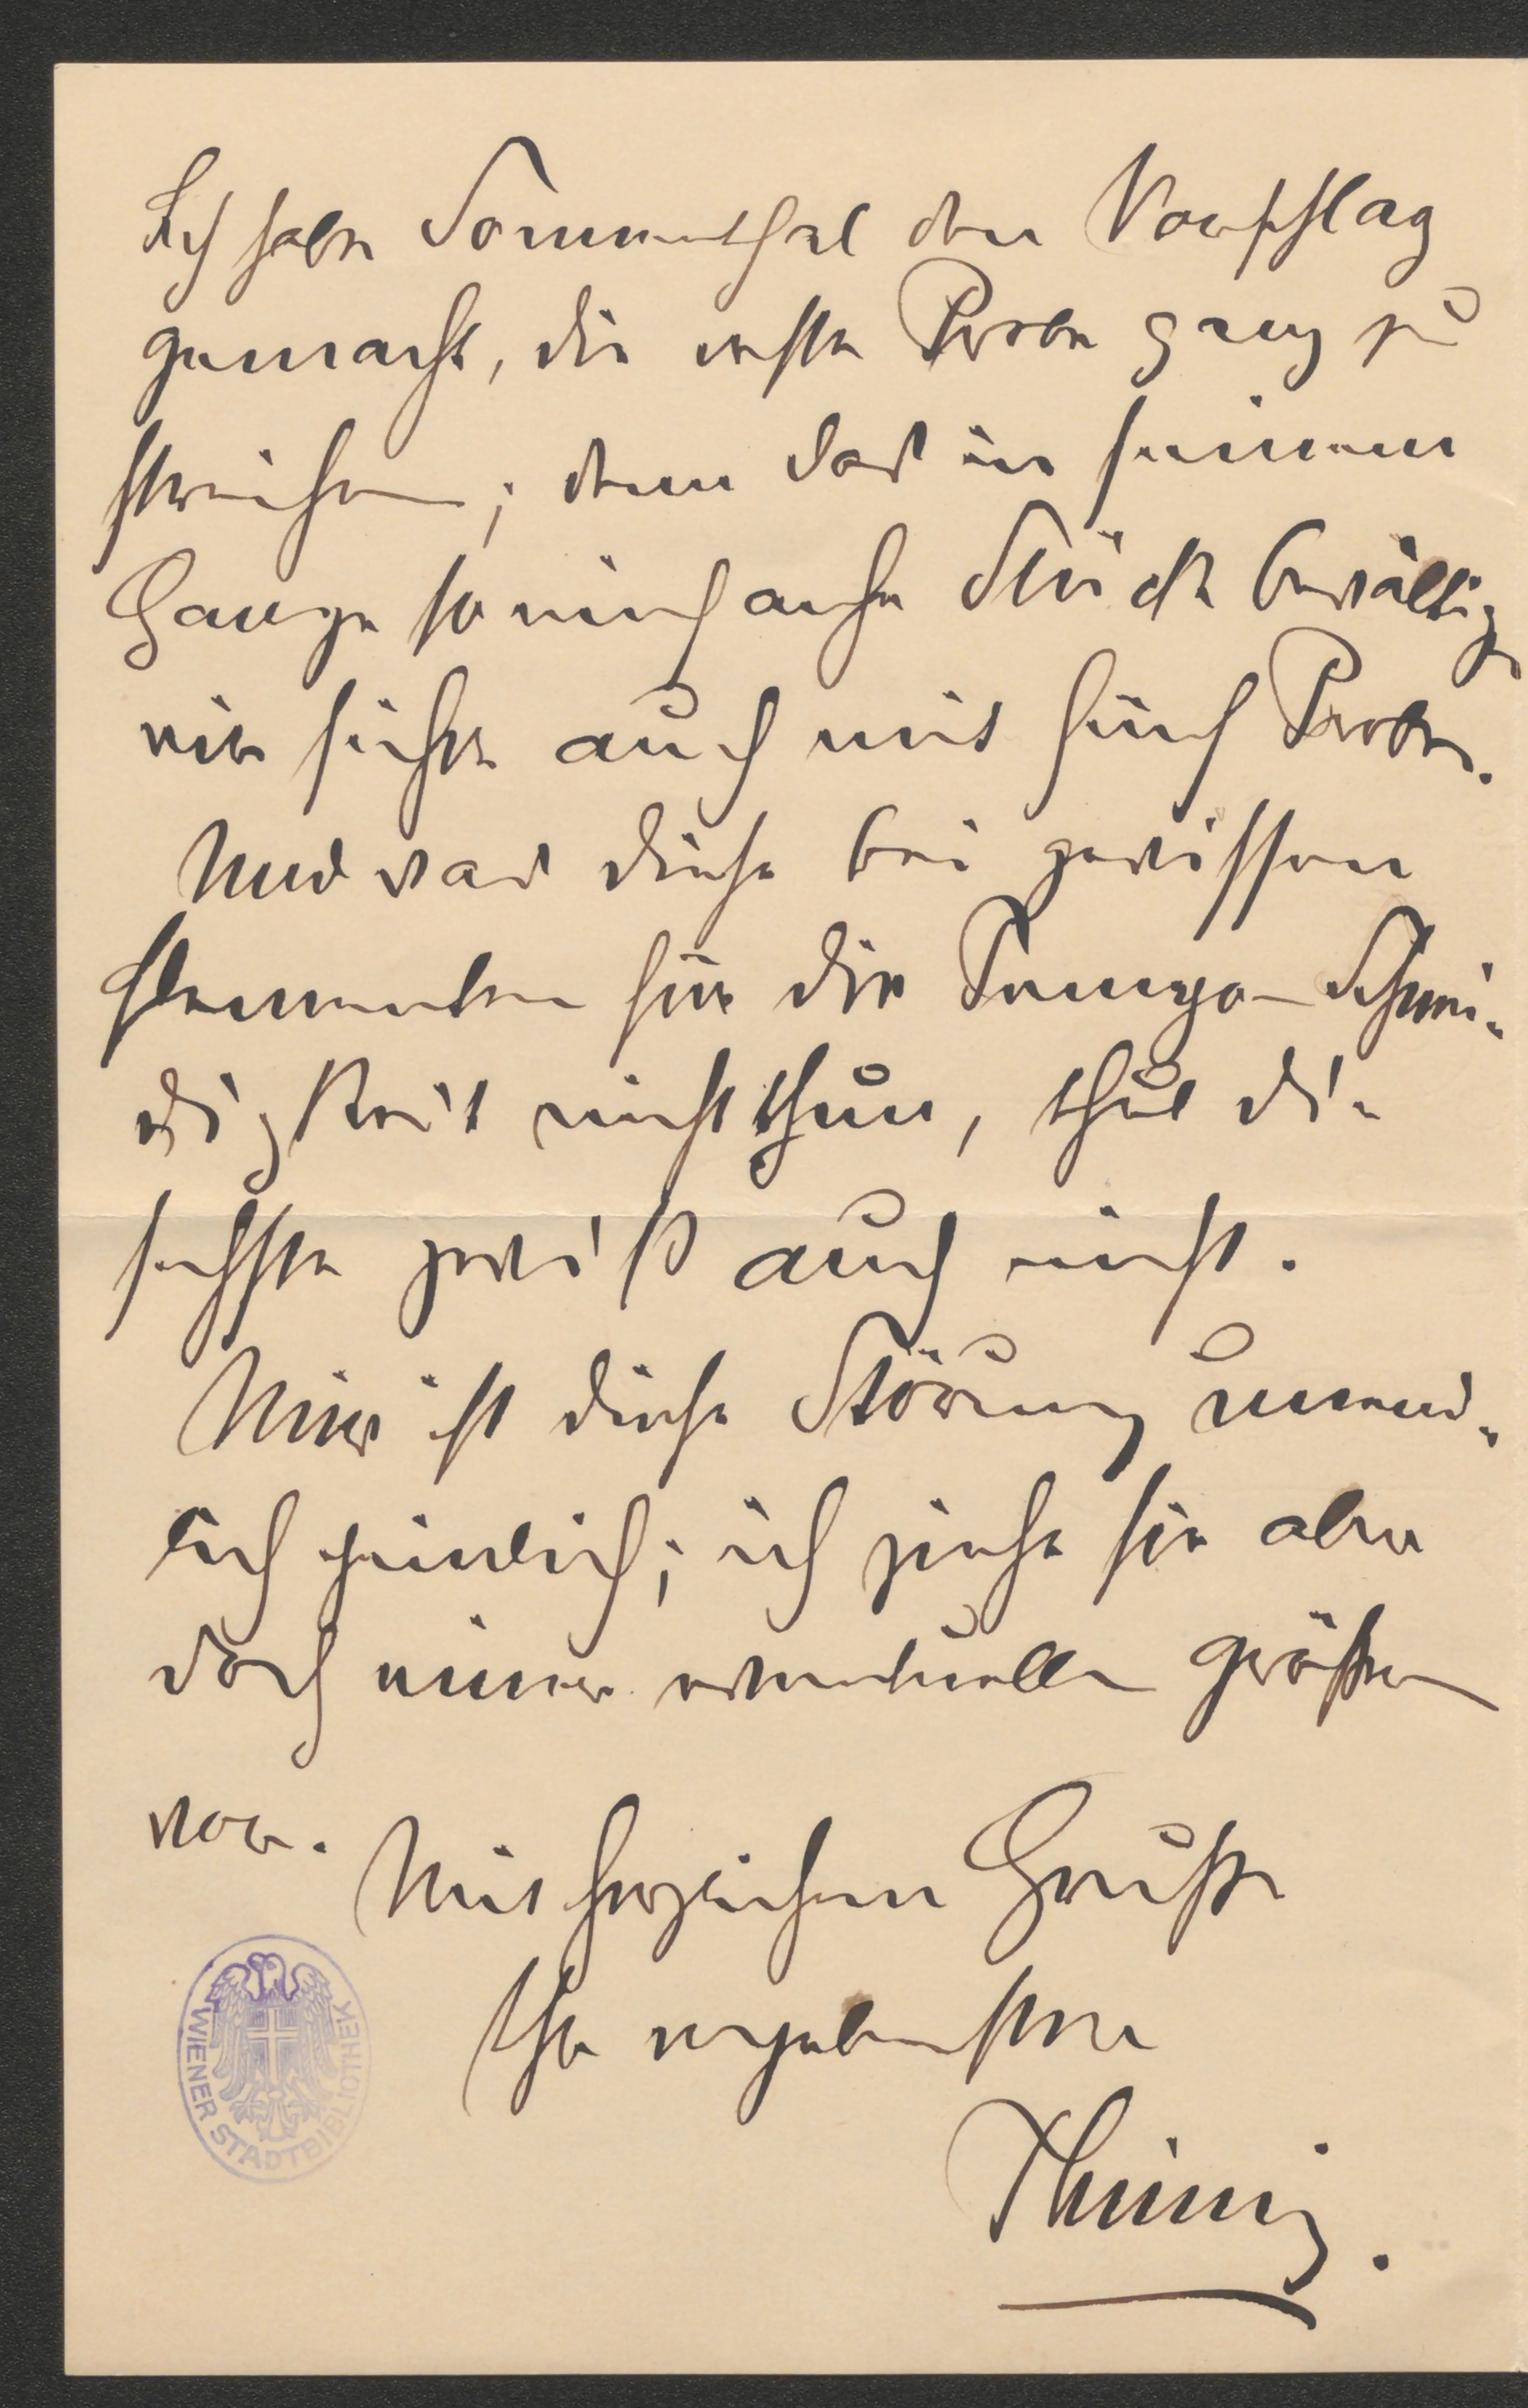 Ich habe Sonnenthal den Vorschlag
gemacht, die erste Probe ganz zu
streichen; denn das in seinem
Gange so einfache Stück bewältigen
wir sicher auch mit fünf Proben.
Und was diese bei gewissen
Elementen für die Tempo-Schnei-
digkeit nicht thun, thut die
sechste gewiß auch nicht.
Mir ist diese Störung unend-
lich peinlich; ich ziehe sie aber
doch einer eventuellen größern
vor.
Mit herzlichem Gruße
Ihr ergebenster
Thimig.
WIENER STADTBIBLIOTHEK